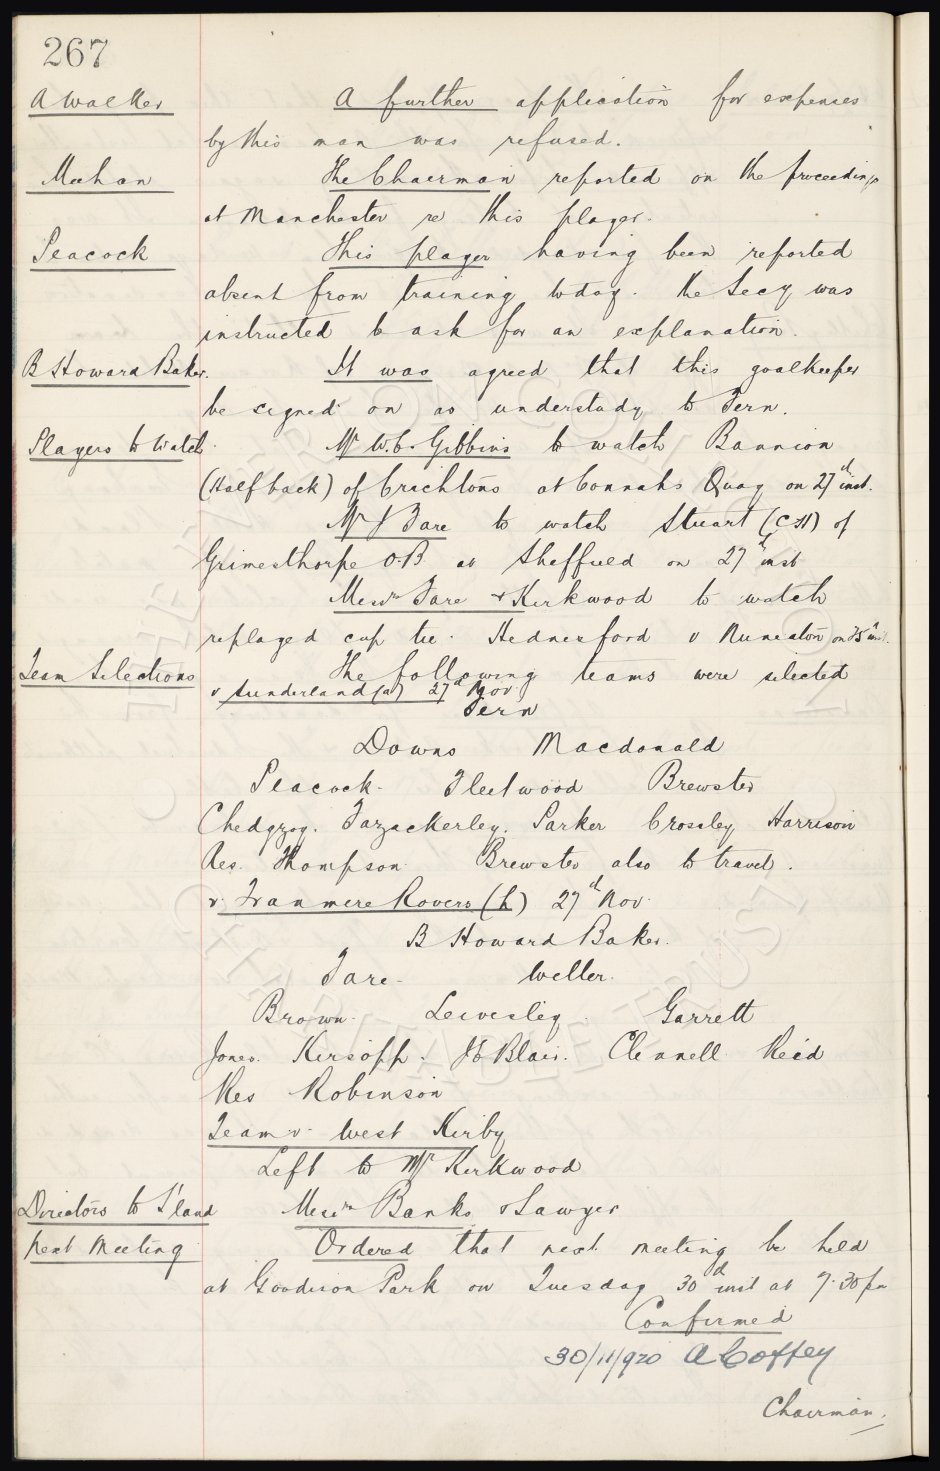 267
A Walker A further application for expenses
by this man was refused.
Meehan The Chairman reported on the proceedings
at Manchester re this player.
Peacock This player having been reported
absent from training today. The Secy was
instructed to ask for an explanation.
B Howard Baker. It was agreed that this goalkeeper
be signed on as understudy to Fern.
Players to Watch Mr W.C. Gibbins to watch Bannion
(Halfback) of Crichtons at Connahs Quay on 27d inst.
Mr J Fare to watch Stuart (CH) of
Grimesthorpe O.B. at Sheffield on 27d inst
Messrs Fare & Kirkwood to watch
replayed cup tie. Hednesford v Nuneaton on 25th inst.
Team Selections The following teams were selected
v Sunderland (a) 27d Nov
Fern
Downs Macdonald
Peacock. Fleetwood Brewster
Chedgzoy. Fazackerley. Parker Crossley Harrison
Res. Thompson Brewster also to travel.
v Tranmere Rovers (h) 27d Nov.
B Howard Baker.
Fare. Weller.
Brown. Leivesley. Garrett
Jones. Kirsopp. Jo Blair. Clennell Reid
Res Robinson
Team v. West Kirby
Left to Mr Kirkwood
Directors to S'land Messrs Banks & Sawyer
Next Meeting Ordered that next meeting be held
at Goodison Park on Tuesday 30d inst at 7.30 pm
Confirmed
30/11/920 A Coffey
Chairman.